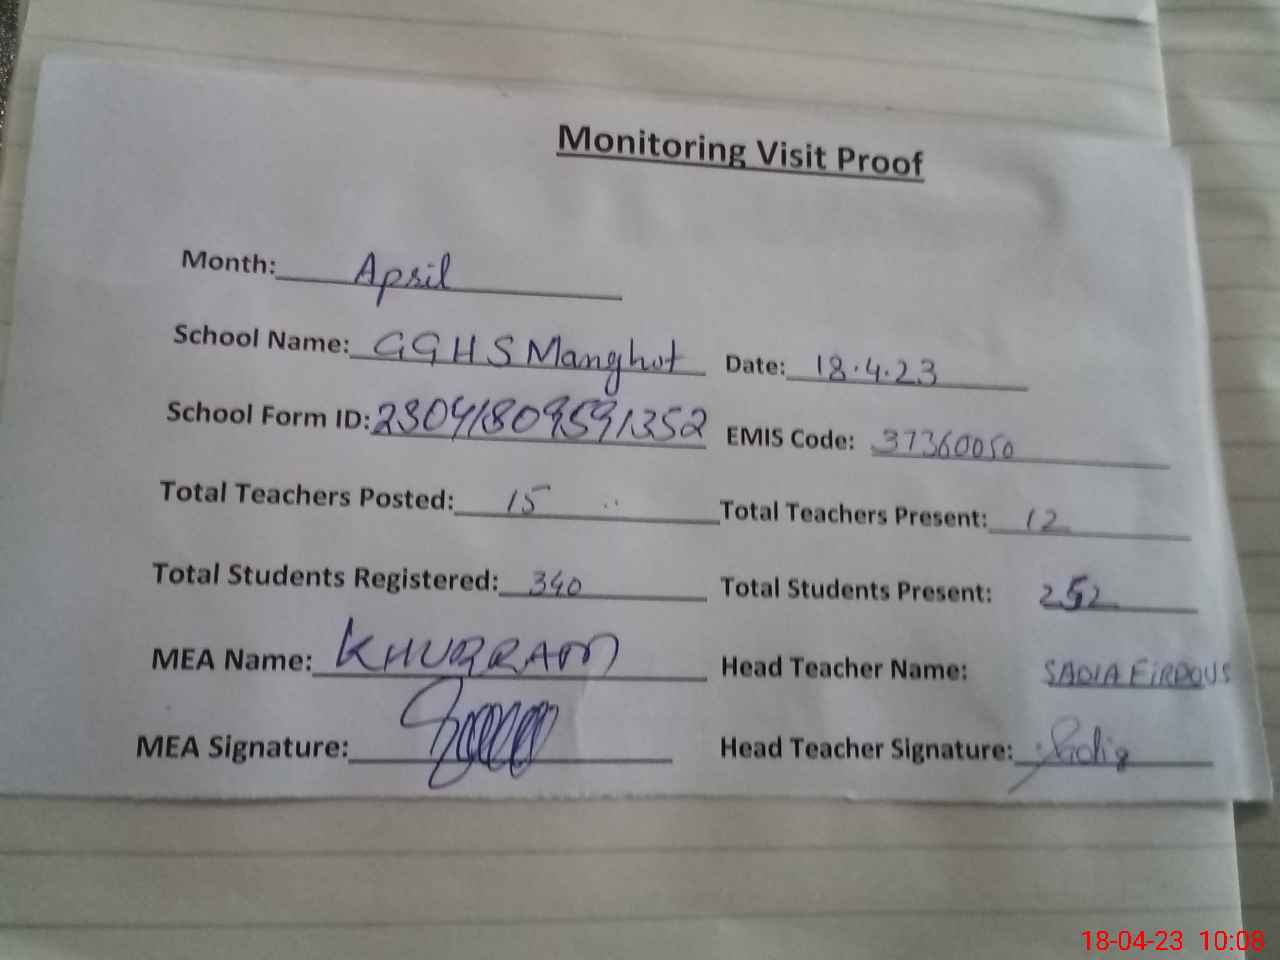 Monitoring Visit Proof
Month: April
School Name: GGHS Manghot Date: 18.4.23
School Form ID: 23041809591352 EMIS Code: 37360050
Total Teachers Posted: 15 Total Teachers Present: 12
Total Students Registered: 340 Total Students Present: 252
MEA Name: KHURRAM Head Teacher Name: SADIA FiRDOUS
MEA Signature: Head Teacher Signature: Sadia
18-04-23 10:08